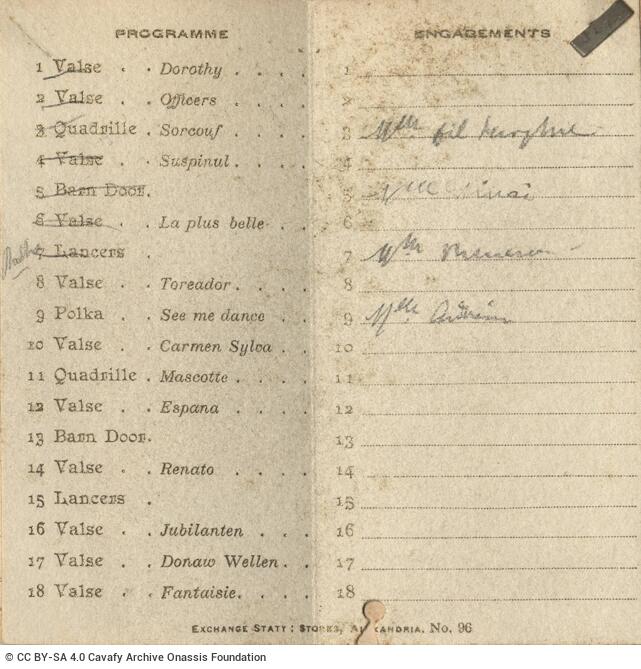 PROGRAMME
1 Valse . . Dorothy . . . .
2 Valse . . Officers . . . .
3 Quadrille . Sorcouf . . . .
4 Valse . . Suspinul . . . .
5 Barn Door.
6 Valse . . La plus belle . .
7 Lancers .
8 Valse . . Toreador . . . .
9 Polka . . See me dance . .
10 Valse . . Carmen Sylva . .
11 Quadrille . Mascotte . . . .
12 Valse . . Espana . . . .
13 Barn Door.
14 Valse . . Renato . . . .
15 Lancers .
16 Valse . . Jubilanten . . .
17 Valse . . Donaw Wellen . .
18 Valse . . Fantaisie. . . .
ENGAGEMENTS
1
2
3 Mme
4
5 Mlle
6
7 Mme
8
9 Mlle
10
11
12
13
14
15
16
17
18
EXCHANGE STATY: STORES, ALEXANDRIA. No. 96
© CC BY-SA 4.0 Cavafy Archive Onassis Foundation